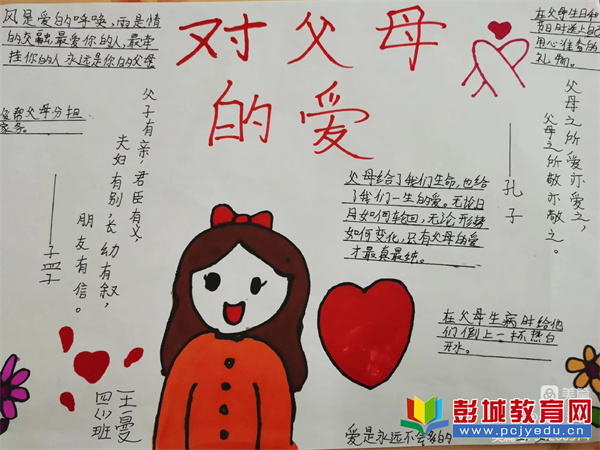 对父母
的爱
风是爱的呼唤,雨是情
的交融,最爱你的人,最牵
挂你的人永远是你的父母
帮父母分担
家务。
父子有亲,君臣有义,
夫妇有别,长幼有叙,
朋友有信。
——孟子
在父母生日和
节日时送上自己
用心准备的
礼物。
父母之所爱亦爱之,
父母之所敬亦敬之。
——孔子
父母给了我们生命,也给
了我们一生的爱。无论日
月如何轮回,无论形势
如何变化,只有父母的爱
才最真最纯。
在父母生病时给他
们倒上一杯热白
开水。
王一曼
四(3)班
爱是永远不会多的
彭城教育网
www.pcjyedu.cn